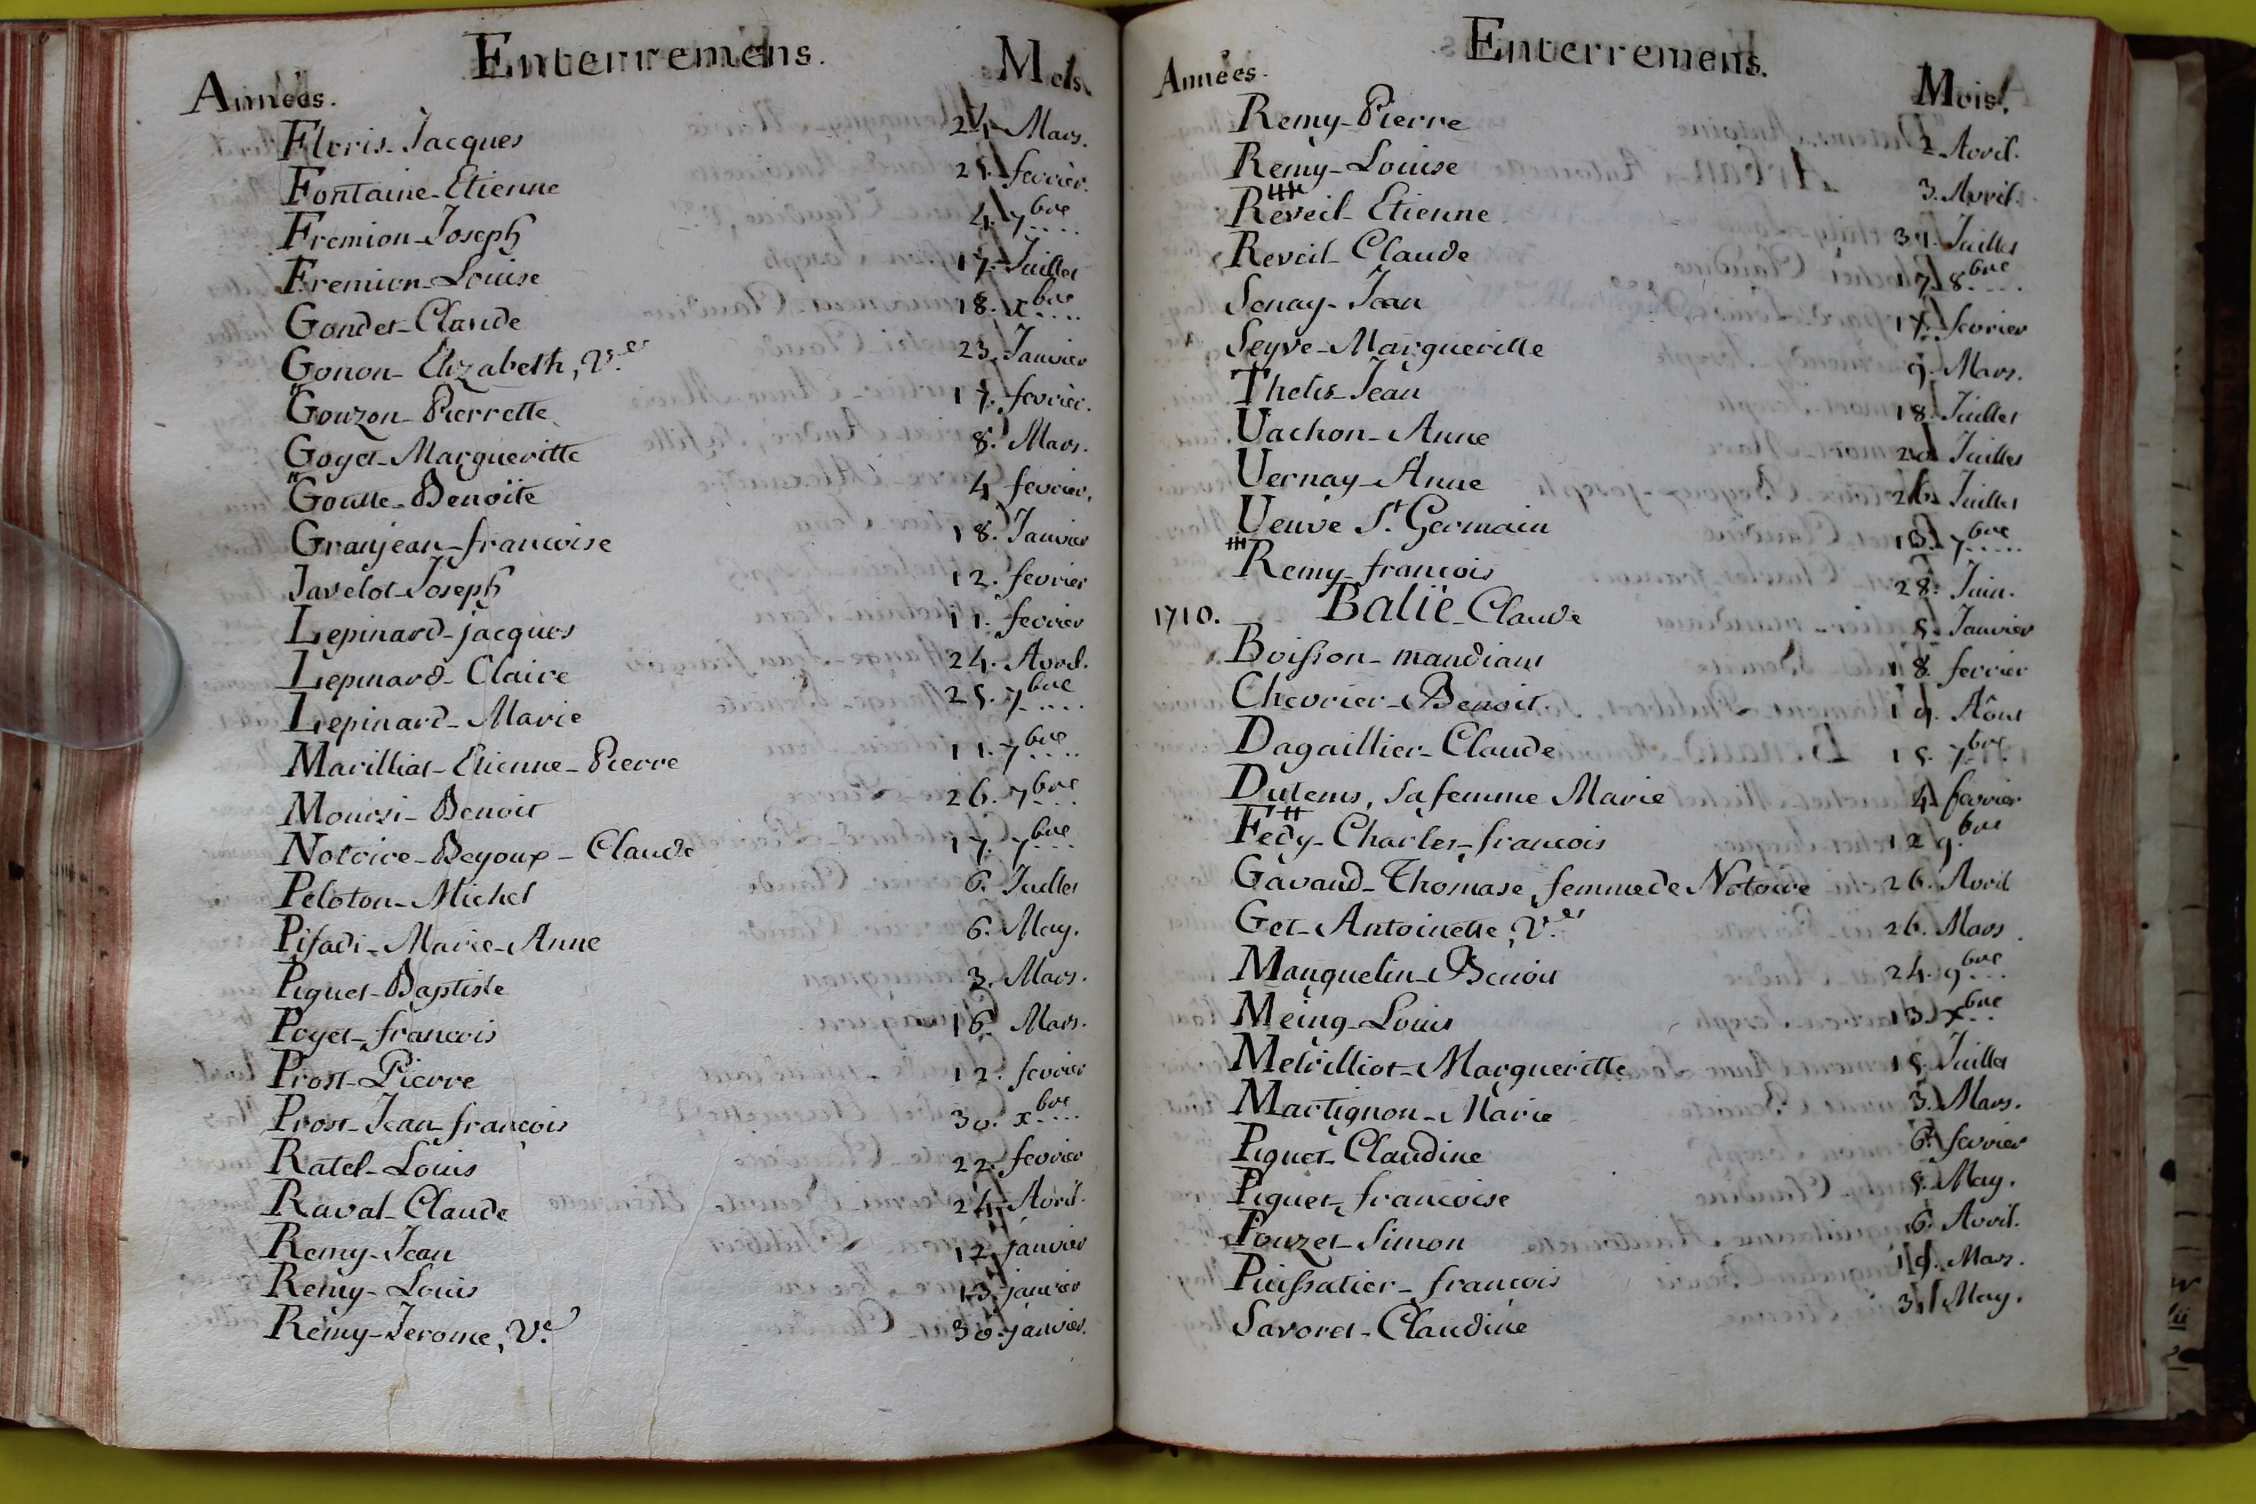 Enterremens.
Années. Mois.
Floris-Jacques 21. Mars.
Fontaine-Etienne 25. fevrier.
Fremion-Joseph 4. 7bre
Fremion-Louise 17. Juillet
Gondet-Claude 18. xbre
Gonon-Elizabeth, Ve. 23. Janvier
Gouzon-Pierrette 17. fevrier.
Goyet-Margueritte 8. Mars.
Goutte-Benoite 4. fevrier.
Granjean-francoise 18. Janvier
Javelot-Joseph 12. fevrier
Lepinard-jacques 11. fevrier
Lepinard-Claire 24. Avril.
Lepinard-Marie 25. 7bre
Marilliat-Etienne-Pierre 11. 7bre
Moursi-Benoit 26. 7bre
Notoire-Beyoux-Claude 17. 7bre
Peloton-Michel 6. Juillet
Pisadi-Marie-Anne 6. May.
Piquet-Baptiste 3. Mars.
Poyet-françois 16. Mars.
Prost-Pierre 12. fevrier
Prost-Jean-françois 30. xbre
Ratel-Louis 22. fevrier
Raval-Claude 24. Avril.
Remy-Jean 12. janvier
Remy-Louis 13. janvier
Remy-Jerome, Ve. 30. janvier.
Enterremens.
Années. Mois.
Remy-Pierre 2. Avril.
Remy-Louise 3. Avril.
Reveil-Etienne 31. Juillet
Reveil-Claude 7. 8bre
Senay-Jean 17. fevrier
Seyve-Margueritte 9. Mars.
Thelis-Jean 18. Juillet
Vachon-Anne 20. Juillet
Vernay-Anne 26. Juillet
Veuve St. Germain 13. 7bre
Remy-françois 28. Juin.
1710. Balie-Claude 5. Janvier
Boisson-mandiant 18. fevrier
Chevrier-Benoit. 19. Aôut
Dagaillier-Claude 15. 7bre
Dutems, sa femme Marie 4. fevrier
Fedy-Charles-françois 12. 9bre
Gavand-Thomase, femme de Notoire 26. Avril
Get-Antoinette, Ve. 26. Mars
Mauquelin-Benoit 24. 9bre
Meing-Louis 13. xbre
Metrilliot-Margueritte 15. Juillet
Martignon-Marie 3. Mars.
Piquet-Claudine 6. fevrier
Piquet-francoise 8. May.
Pouzet-Simon 6. Avril.
Puissatier-françois 19. Mars.
Savoret-Claudine 31. May.